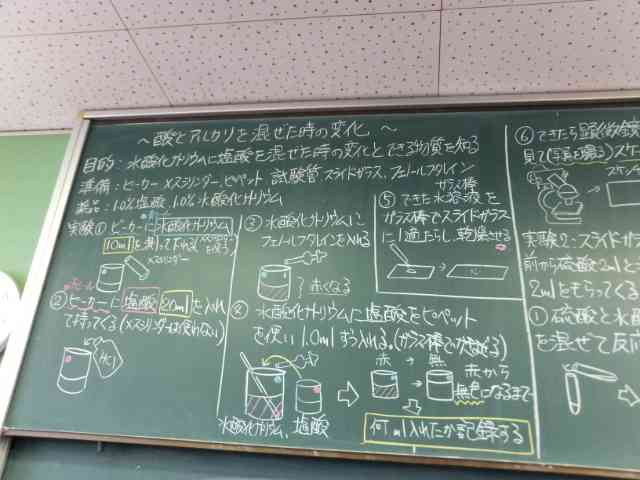 ～酸とアルカリを混ぜた時の変化～
目的：水酸化ナトリウムに塩酸を混ぜた時の変化とできる物質を知る
準備：ビーカー メスシリンダー、ピペット 試験管 スライドガラス、フェノールフタレイン
ガラス棒
薬品：10%塩酸、10%水酸化ナトリウム
実験① ビーカーに水酸化ナトリウム
10mlを
メスシリンダー
② ビーカーに塩酸20mlを入れ
て持ってくる(メスシリンダーは使わない)
HCl
③ 水酸化ナトリウムに
フェノールフタレインを入れる
赤くなる
④ 水酸化ナトリウムに塩酸をピペット
を使い1.0mlずつ入れる。(ガラス棒で
赤 → 無
赤から
無色になるまで
水酸化ナトリウム、塩酸
何ml入れたか記録する
⑤ できた水溶液を
ガラス棒でスライドガラス
に1滴たらし、乾燥させる
⑥ できたら顕微鏡
見て(写真を撮る)スケ
実験2：スライドガラ
前から硫酸2mlと
2mlをもらってくる
① 硫酸と水
を混ぜて反